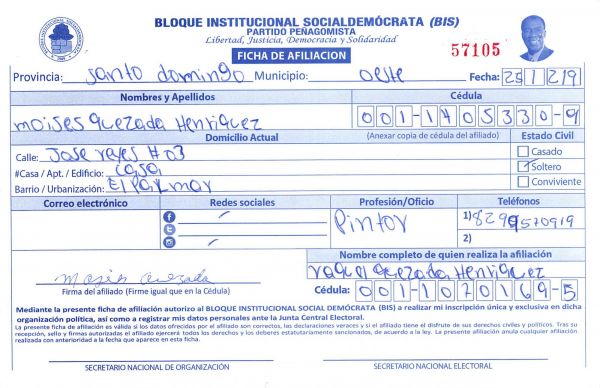 BLOQUE INSTITUCIONAL SOCIALDEMÓCRATA (BIS)
PARTIDO PEÑAGOMISTA
Libertad, Justicia, Democracia y Solidaridad
57105
FICHA DE AFILIACION
Provincia: Santo domingo Municipio: oeste Fecha: 25/2/19
Nombres y Apellidos Cédula
moises quezada Henriquez 001-1405330-9
Domicilio Actual (Anexar copia de cédula del afiliado) Estado Civil
Calle: Jose reyes #03 Casado
#Casa / Apt. / Edificio: casa Soltero
Barrio / Urbanización: El palmar Conviviente
Correo electrónico Redes sociales Profesión/Oficio Teléfonos
Pintor 1) 8299570919
2)
Nombre completo de quien realiza la afiliación
raquel quezada Henriquez
Moises Quezada
Firma del afiliado (Firme igual que en la Cédula) Cédula: 001-1070169-5
Mediante la presente ficha de afiliación autorizo al BLOQUE INSTITUCIONAL SOCIAL DEMÓCRATA (BIS) a realizar mi inscripción única y exclusiva en dicha
organización política, así como a registrar mis datos personales ante la Junta Central Electoral.
La presente ficha de afiliación es válida si los datos ofrecidos por el afiliado son correctos, las declaraciones veraces y si el afiliado tiene el disfrute de sus derechos civiles y políticos. Tras su
recepción, sello y firmas autorizadas el afiliado ejercerá todos los derechos y los deberes estatutariamente sancionados, de acuerdo a la ley. La presente afiliación anula cualquier afiliación
realizada con anterioridad a la fecha que aparece en esta ficha.
SECRETARIO NACIONAL DE ORGANIZACIÓN SECRETARIO NACIONAL ELECTORAL